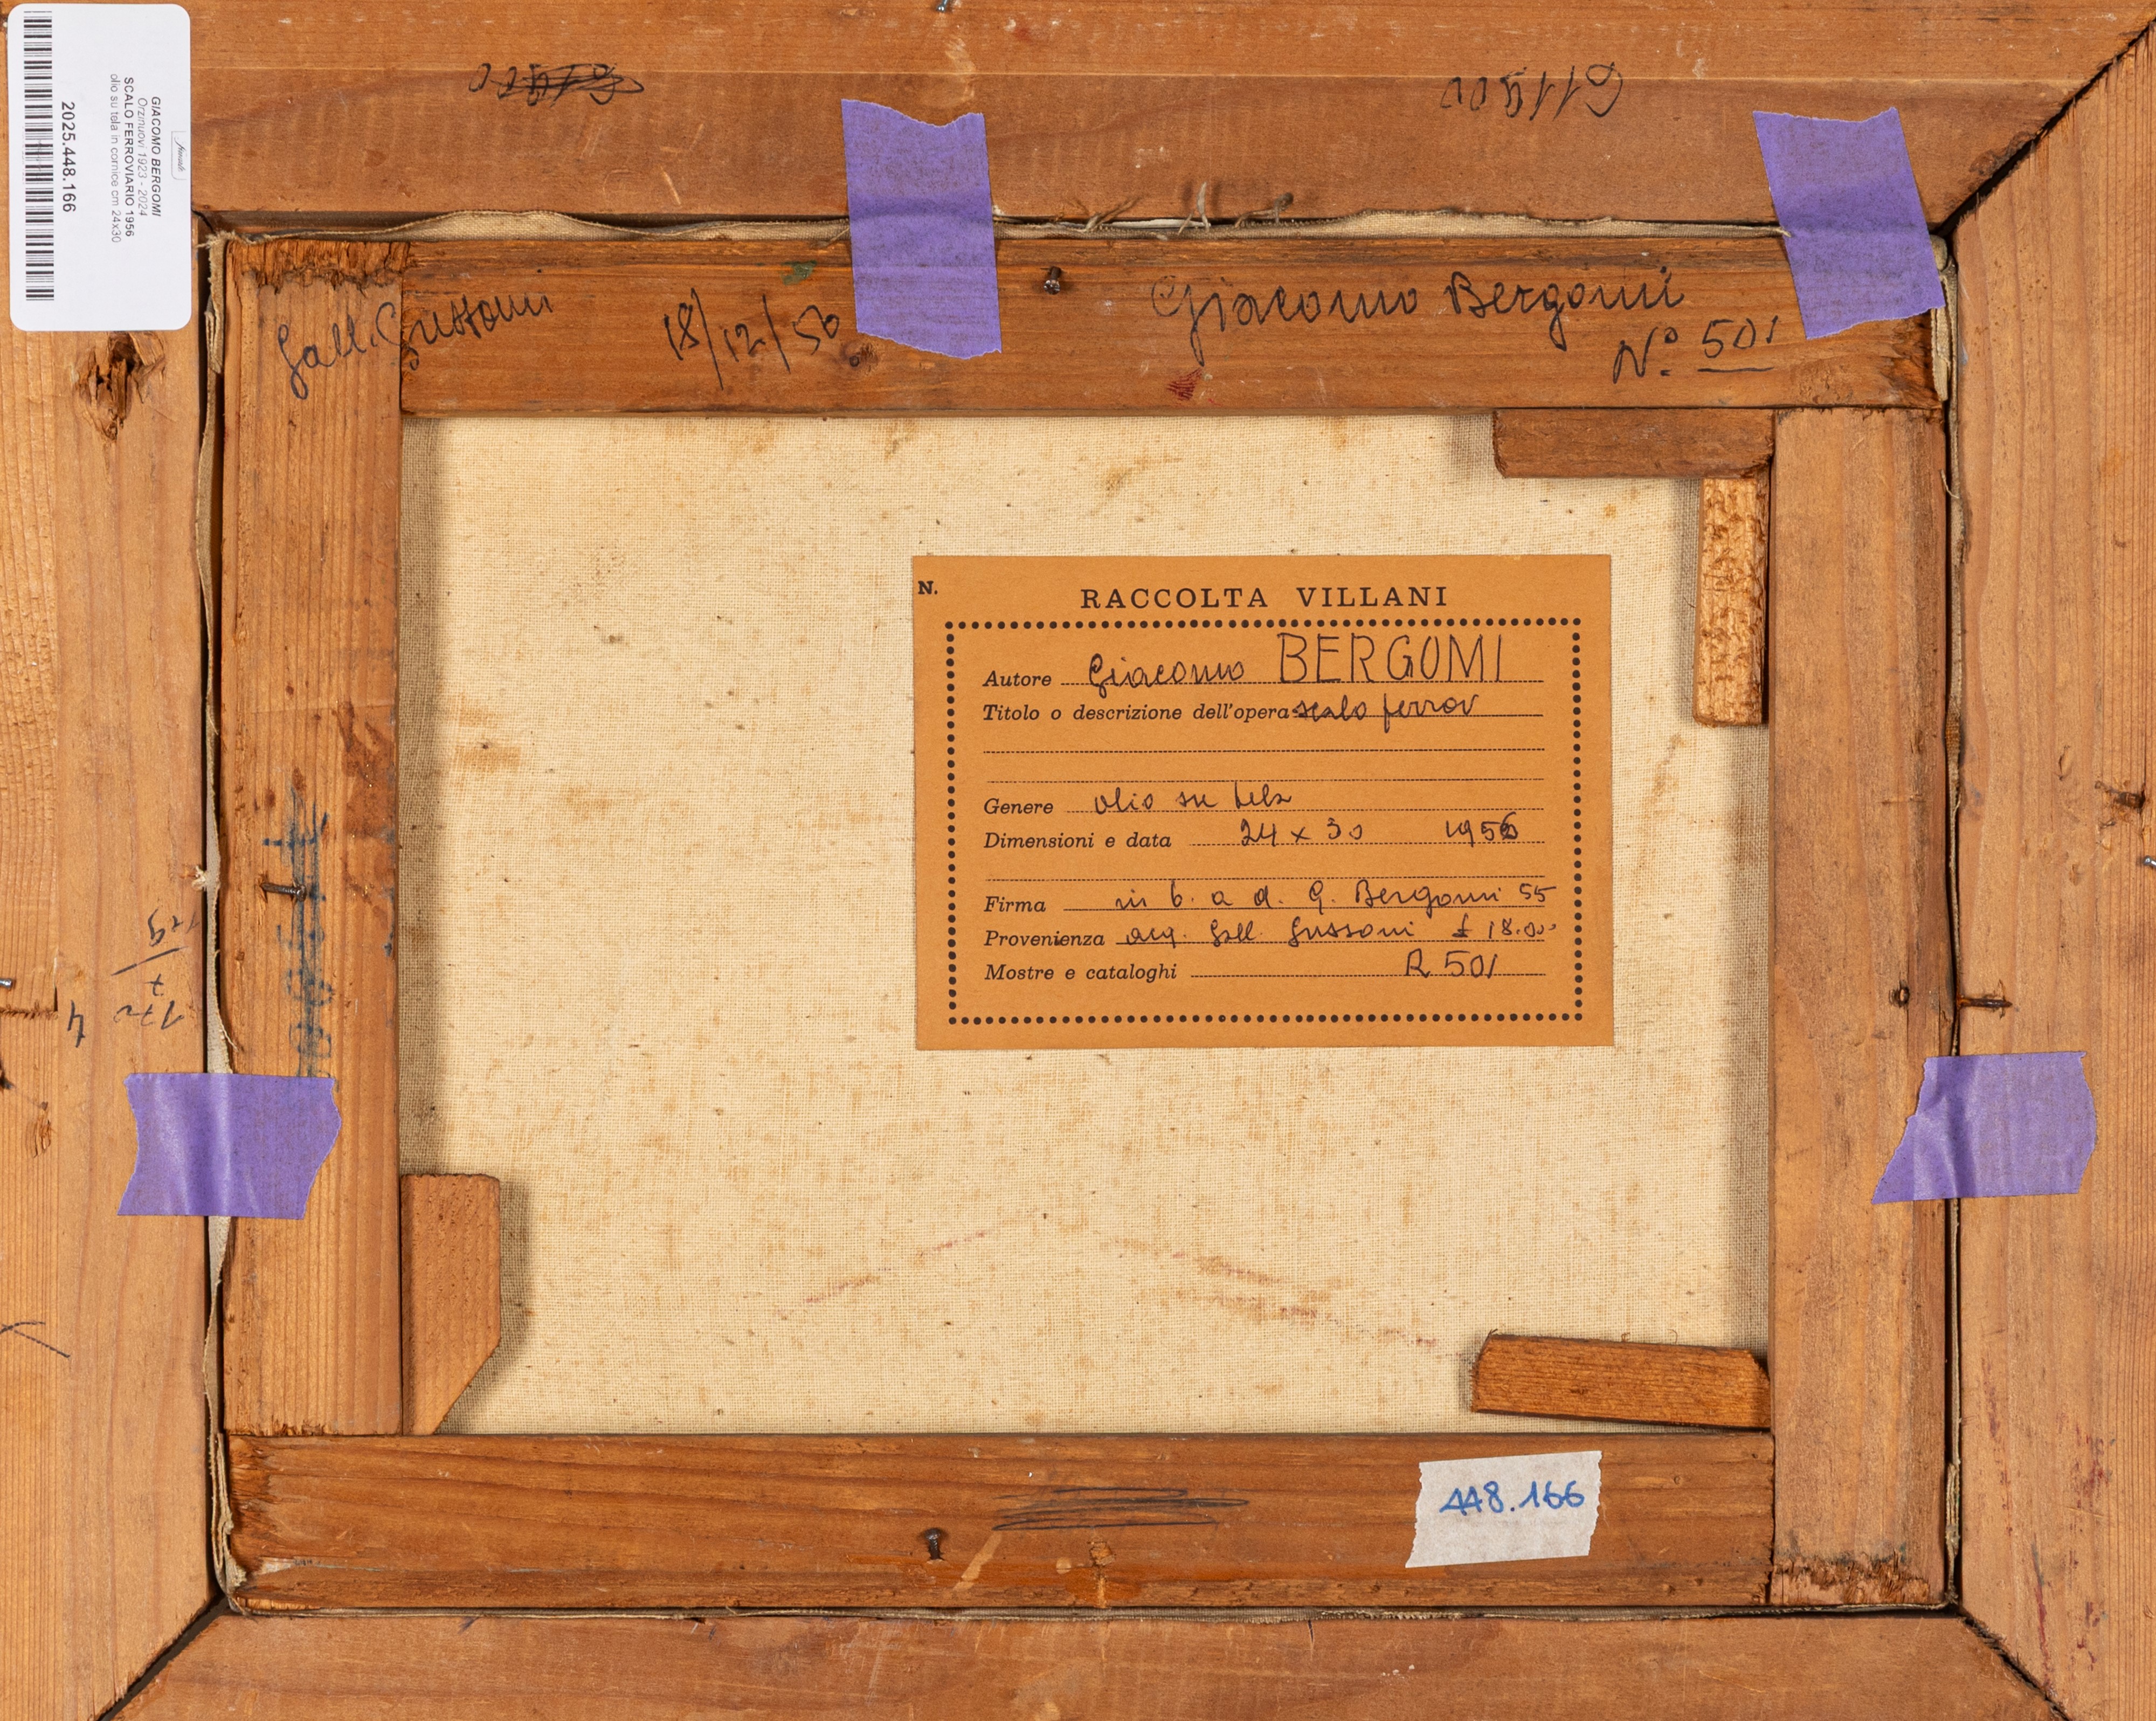 GIACOMO BERGOMI
Orzinuovi 1923 - 2024
SCALO FERROVIARIO 1956
olio su tela in cornice cm 24x30
2025.448.166
61900
611900
Gall. Gussoni
18/12/56
Giacomo Bergomi
N° 501
N.
RACCOLTA VILLANI
Autore Giacomo BERGOMI
Titolo o descrizione dell'opera scalo ferrov
Genere olio su tela
Dimensioni e data 24 x 30 1956
Firma in b. a d. G. Bergomi 55
Provenienza acq. Gall. Gussoni £ 18.000
Mostre e cataloghi R 501
448.166